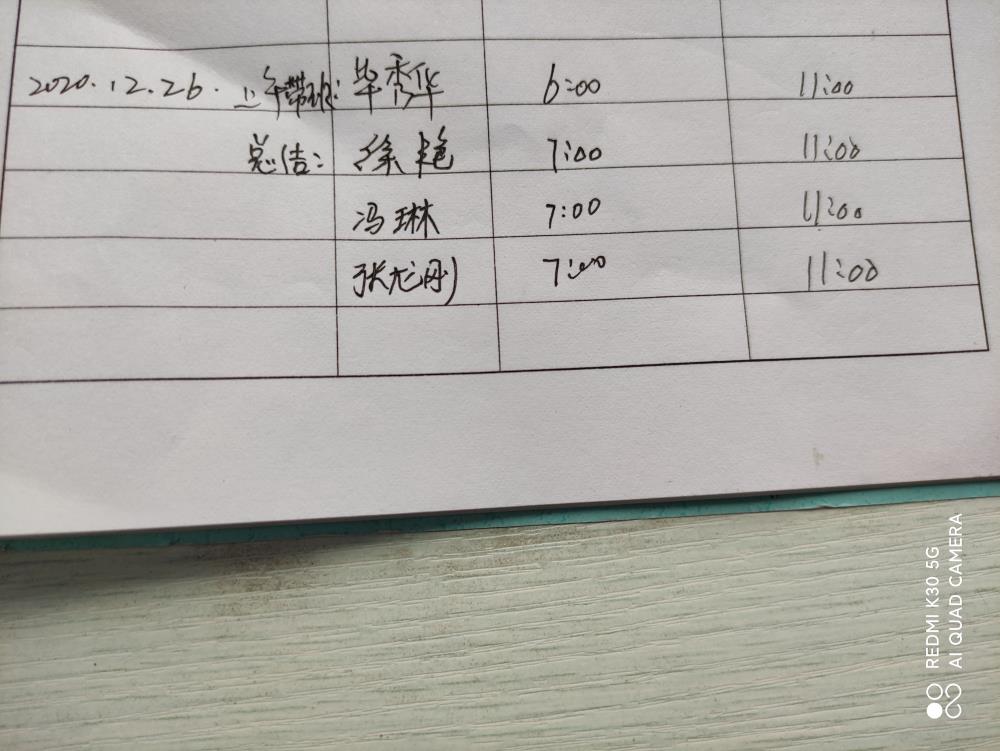 2020.12.26. 上午带班: 毕秀华 6:00 11:00
总结: 徐艳 7:00 11:00
冯琳 7:00 11:00
张龙刚 7:00 11:00
REDMI K30 5G
AI QUAD CAMERA